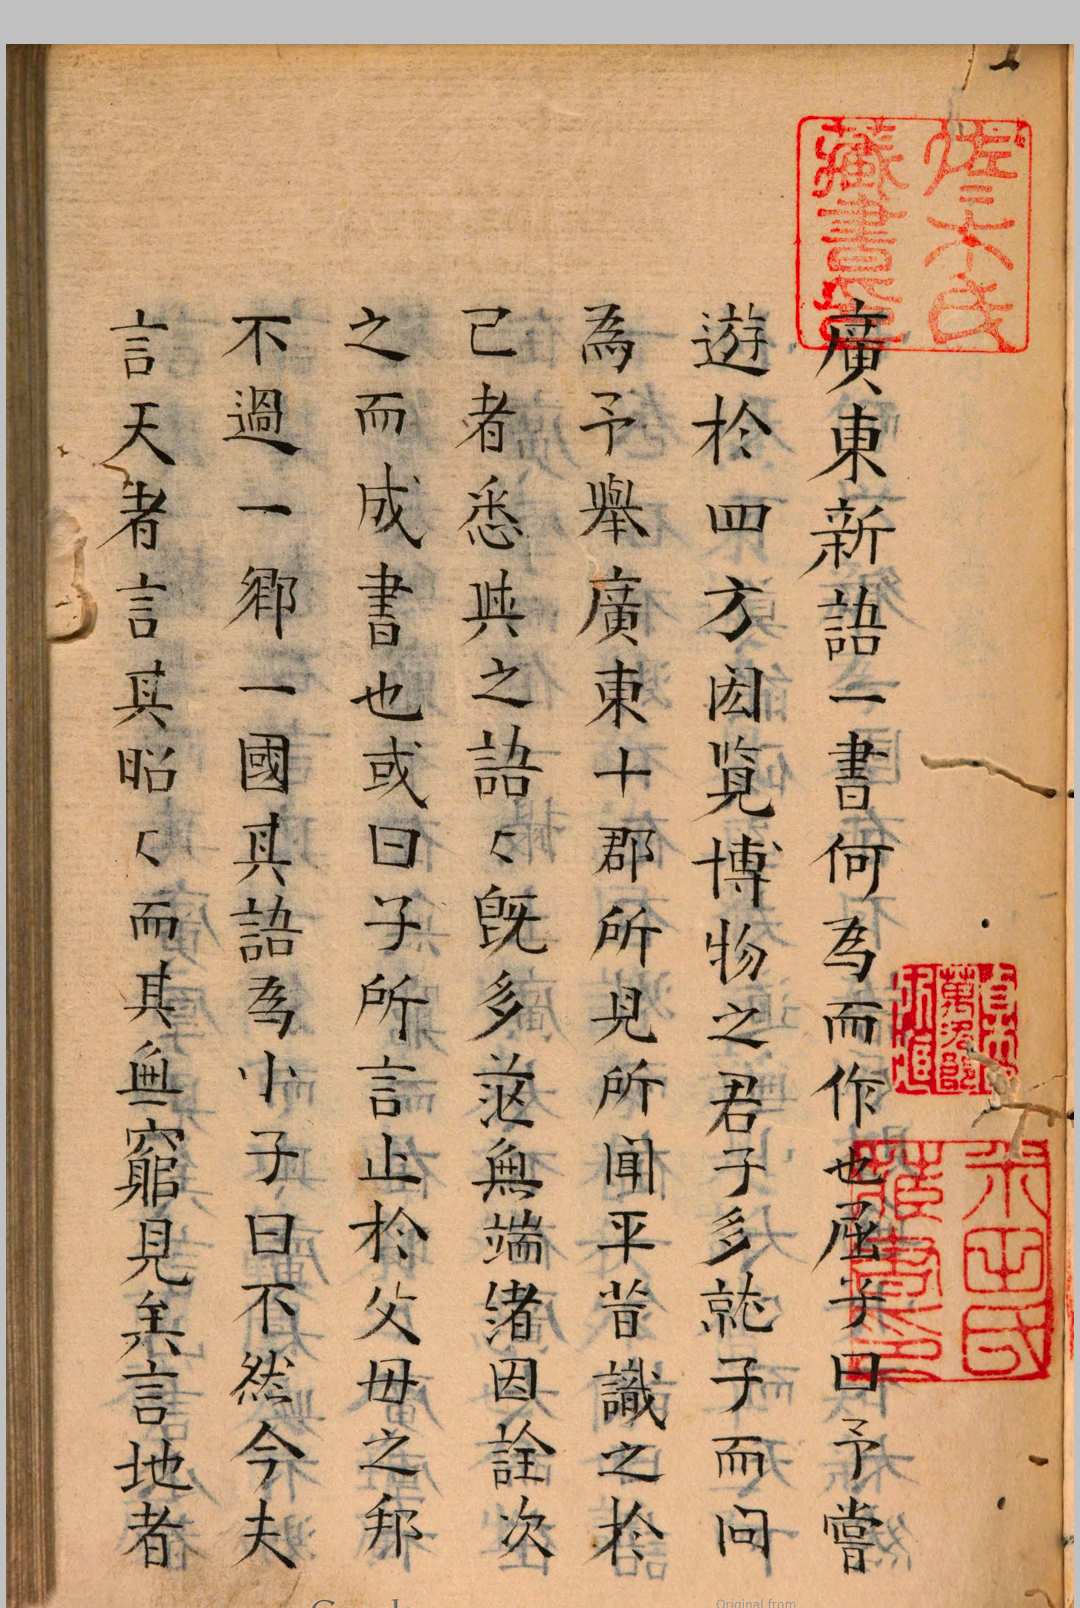 佐々木氏
藏書印
廣東新語一書何為而作也屈子曰予嘗
遊於四方閎覽博物之君子多就子而問
焉予舉廣東十郡所見所聞平昔識之於
己者悉與之語々既多茫無端緒因詮次
之而成書也或曰子所言止於父母之邦
不過一鄉一國其語為小子曰不然今夫
言天者言其昭々而其無窮見矣言地者
米田氏
藏書印
Original from